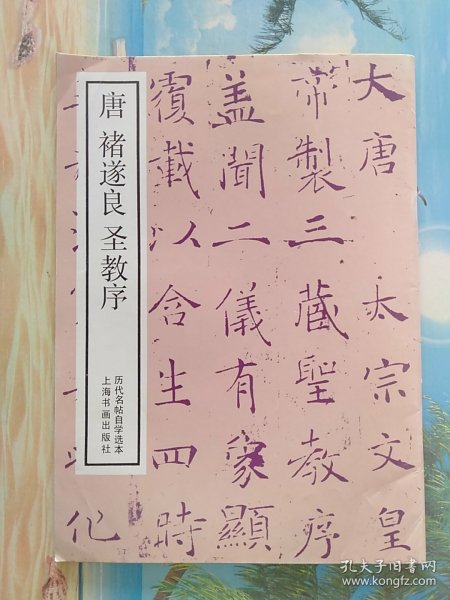 唐 褚遂良 圣教序
历代名帖自学选本
上海书画出版社
大唐 太宗文皇
帝製三藏聖教序
盖聞二儀有象顯
覆載以含生四時
化
孔夫子旧书网
www.kongfz.com